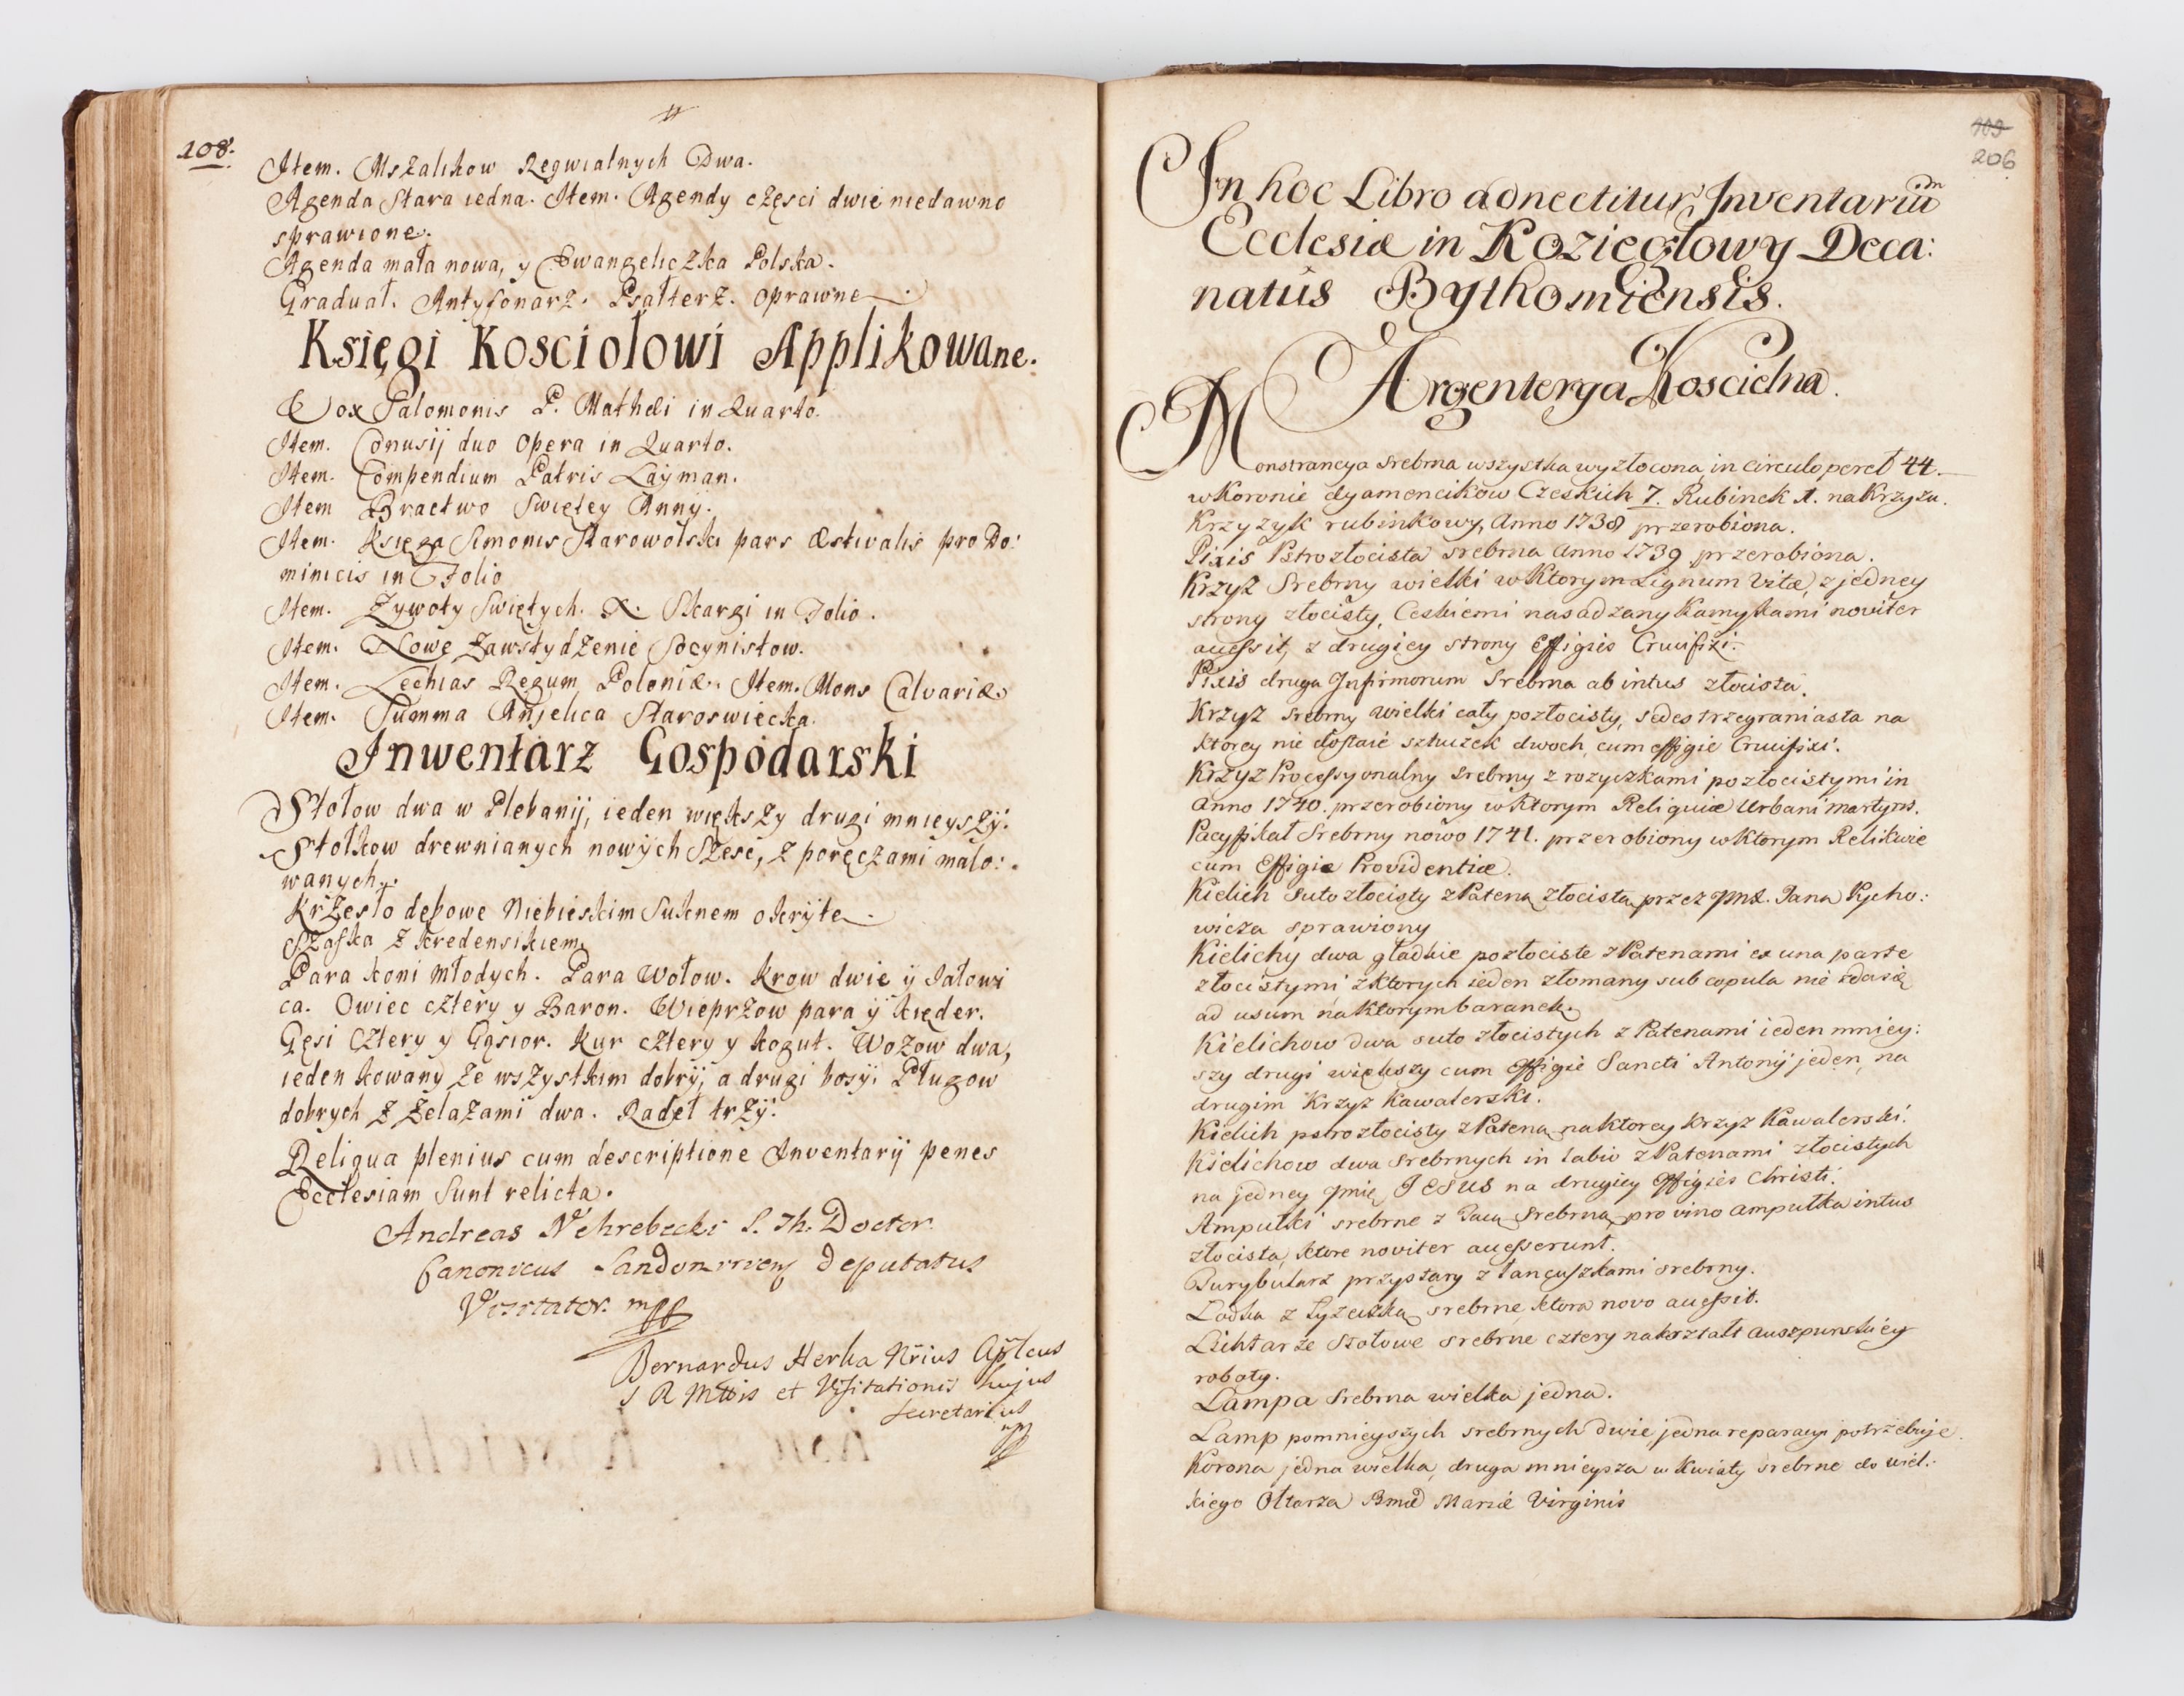 108.
Item. Mszalikow Reqwialnych Dwa.
Agenda Stara iedna. Item. Agendy częsci dwie niedawno
sprawione.
Agenda mała nowa, y Ewangeliczka Polska.
Graduał. Antyfonarz. Psałterz. oprawne.
Księgi Kosciołowi Applikowane.
Vox Salomonis P. Mathæi in Quarto.
Item. Drusij duo Opera in Quarto.
Item. Compendium Patris Layman.
Item Bractwo Swiętey Anny.
Item. Księga Simonis Starowolski pars Æstivalis pro Do:
minicis in Folio
Item. Zywoty Swiętych. X. Skargi in Folio.
Item. Nowe Zawstydzenie Socynistow.
Item. Lechias Regum Poloniæ. Item. Mons Calvariæ.
Item. Summa Anjelica Staroswiecka.
Inwentarz Gospodarski
Stołow dwa w Plebanij, ieden większy drugi mnieyszy.
Stołkow drewnianych nowych Szesc, z poręczami malo:
wanych.
Krzesło dębowe Niebieskim Suknem okryte.
Szafka z kredensikiem
Para koni młodych. Para Wołow. Krow dwie ÿ Jałowi
ca. Owiec cztery y Baron. Wieprzow para ÿ kięder.
Gęsi Cztery y Gąsior. Kur cztery y kogut. Wozow dwa,
ieden kowany ze wszystkim dobrÿ, a drugi bosÿ. Pługow
dobrych z Zelazami dwa. Radeł trzÿ.
Reliqua plenius cum descriptione Inventarij penes
Ecclesiam Sunt relicta.
Andreas Nehrebecki S. Th. Doctor
Canonicus Sandomiriens Deputatus
Visitator. mpp
Bernardus Herka Nrius Aplcus
S R Mttis et Visitationis hujus
Secretarius
mpp
109
206
In hoc Libro adnectitur Inventariū
Ecclesiæ in Koziegłowy Deca:
natûs Bythomiensis.
Argenterya Koscielna.
Monstrancya srebrna wszystka wyzłocona in circulo pereł 44.
w Koronie dyamencikow Czeskich 7. Rubinek 1. na Krzyzu.
Krzyzyk rubinkowy, Anno 1738 przerobiona.
Pixis Pstrozłocista srebrna Anno 1739 przerobiona.
Krzyz Srebrny wielki w Ktorym Lignum Vitæ, z jedney
strony złocisty, Ceskiemi nasadzany Kamykami noviter
accessit, z drugiey strony Effigies Crucifixi.
Pixis druga Infirmorum Srebrna ab intus złocista.
Krzyz srebrny wielki cały pozłocisty, sedes trzegraniasta na
ktorey nie dostaie sztuczek dwoch, cum effigie Crucifixi.
Krzyz Processyonalny srebrny z rozyczkami pozłocistymi in
Anno 1740. przerobiony w Ktorym Reliquiæ Urbani martyris.
Pacyfikał Srebrny nowo 1741. przerobiony w Ktorym Relikwie
cum Effigie Providentiæ.
Kielich suto złocisty z Pateną złocistą przez Jmć. Pana Pycho:
wicza sprawiony
Kielichy dwa gładkie pozłociste z Patenami ex una parte
złocistymi z ktorych ieden złomany sub copula nie zda się
ad usum na Ktorym baranek.
Kielichow dwa suto złocistych z Patenami ieden mniey:
szy drugi większy cum effigie Sancti Antonij jeden, na
drugim Krzyz Kawalerski.
Kielich pstrozłocisty z Pateną na ktorey Krzyz Kawalerski.
Kielichow dwa Srebrnych in labio z Patenami złocistych
na jedney Imię JESUS na drugiey Effigies Christi.
Ampułki srebrne z Tacą Srebrną pro vino ampułka intus
złocista, ktore noviter accesserunt.
Turybularz przystary z łancuszkami srebrny.
Lodka z Łyzeczką srebrne ktora novo accessit.
Lichtarze Stołowe srebrne cztery na kształt auszpurskiey
roboty.
Lampa srebrna wielka jedna.
Lamp pomnieyszych srebrnych dwie, jedna reparacyi potrzebuje.
Korona jedna wielka, druga mnieysza w Kwiaty srebrne do wiel:
kiego Ołtarza Bmæ Mariæ Virginis